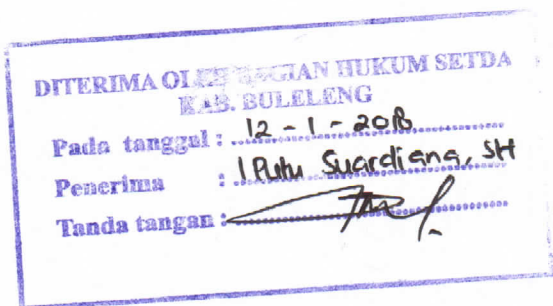 DITERIMA OLEH BAGIAN HUKUM SETDA
KAB. BULELENG
Pada tanggal : 12 - 1 - 2018
Penerima : I Putu Suardiana, SH
Tanda tangan :